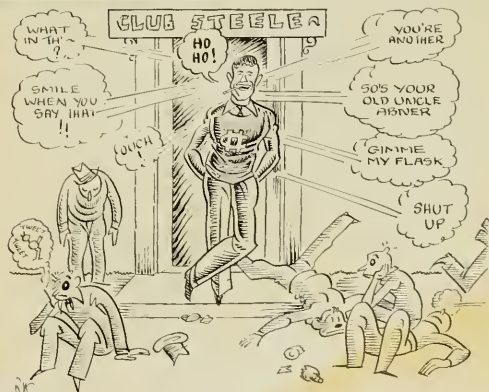 CLUB STEELE
WHAT
IN TH'~
?
HO
HO!
YOU'RE
ANOTHER
SMILE
WHEN YOU
SAY THAT
!!
SO'S YOUR
OLD UNCLE
ABNER
OUCH
!
GIMME
MY FLASK
SHUT
UP